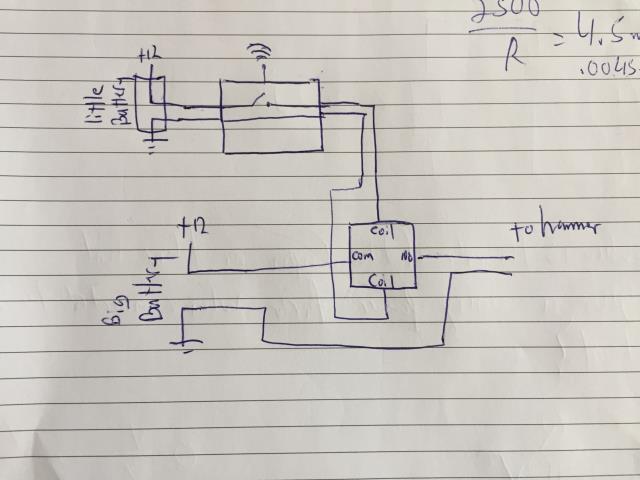 2500
R
= 4.5m
.0045
+12
little
Battery
coil
+12
com
No
to hammer
Coil
Big
Battery